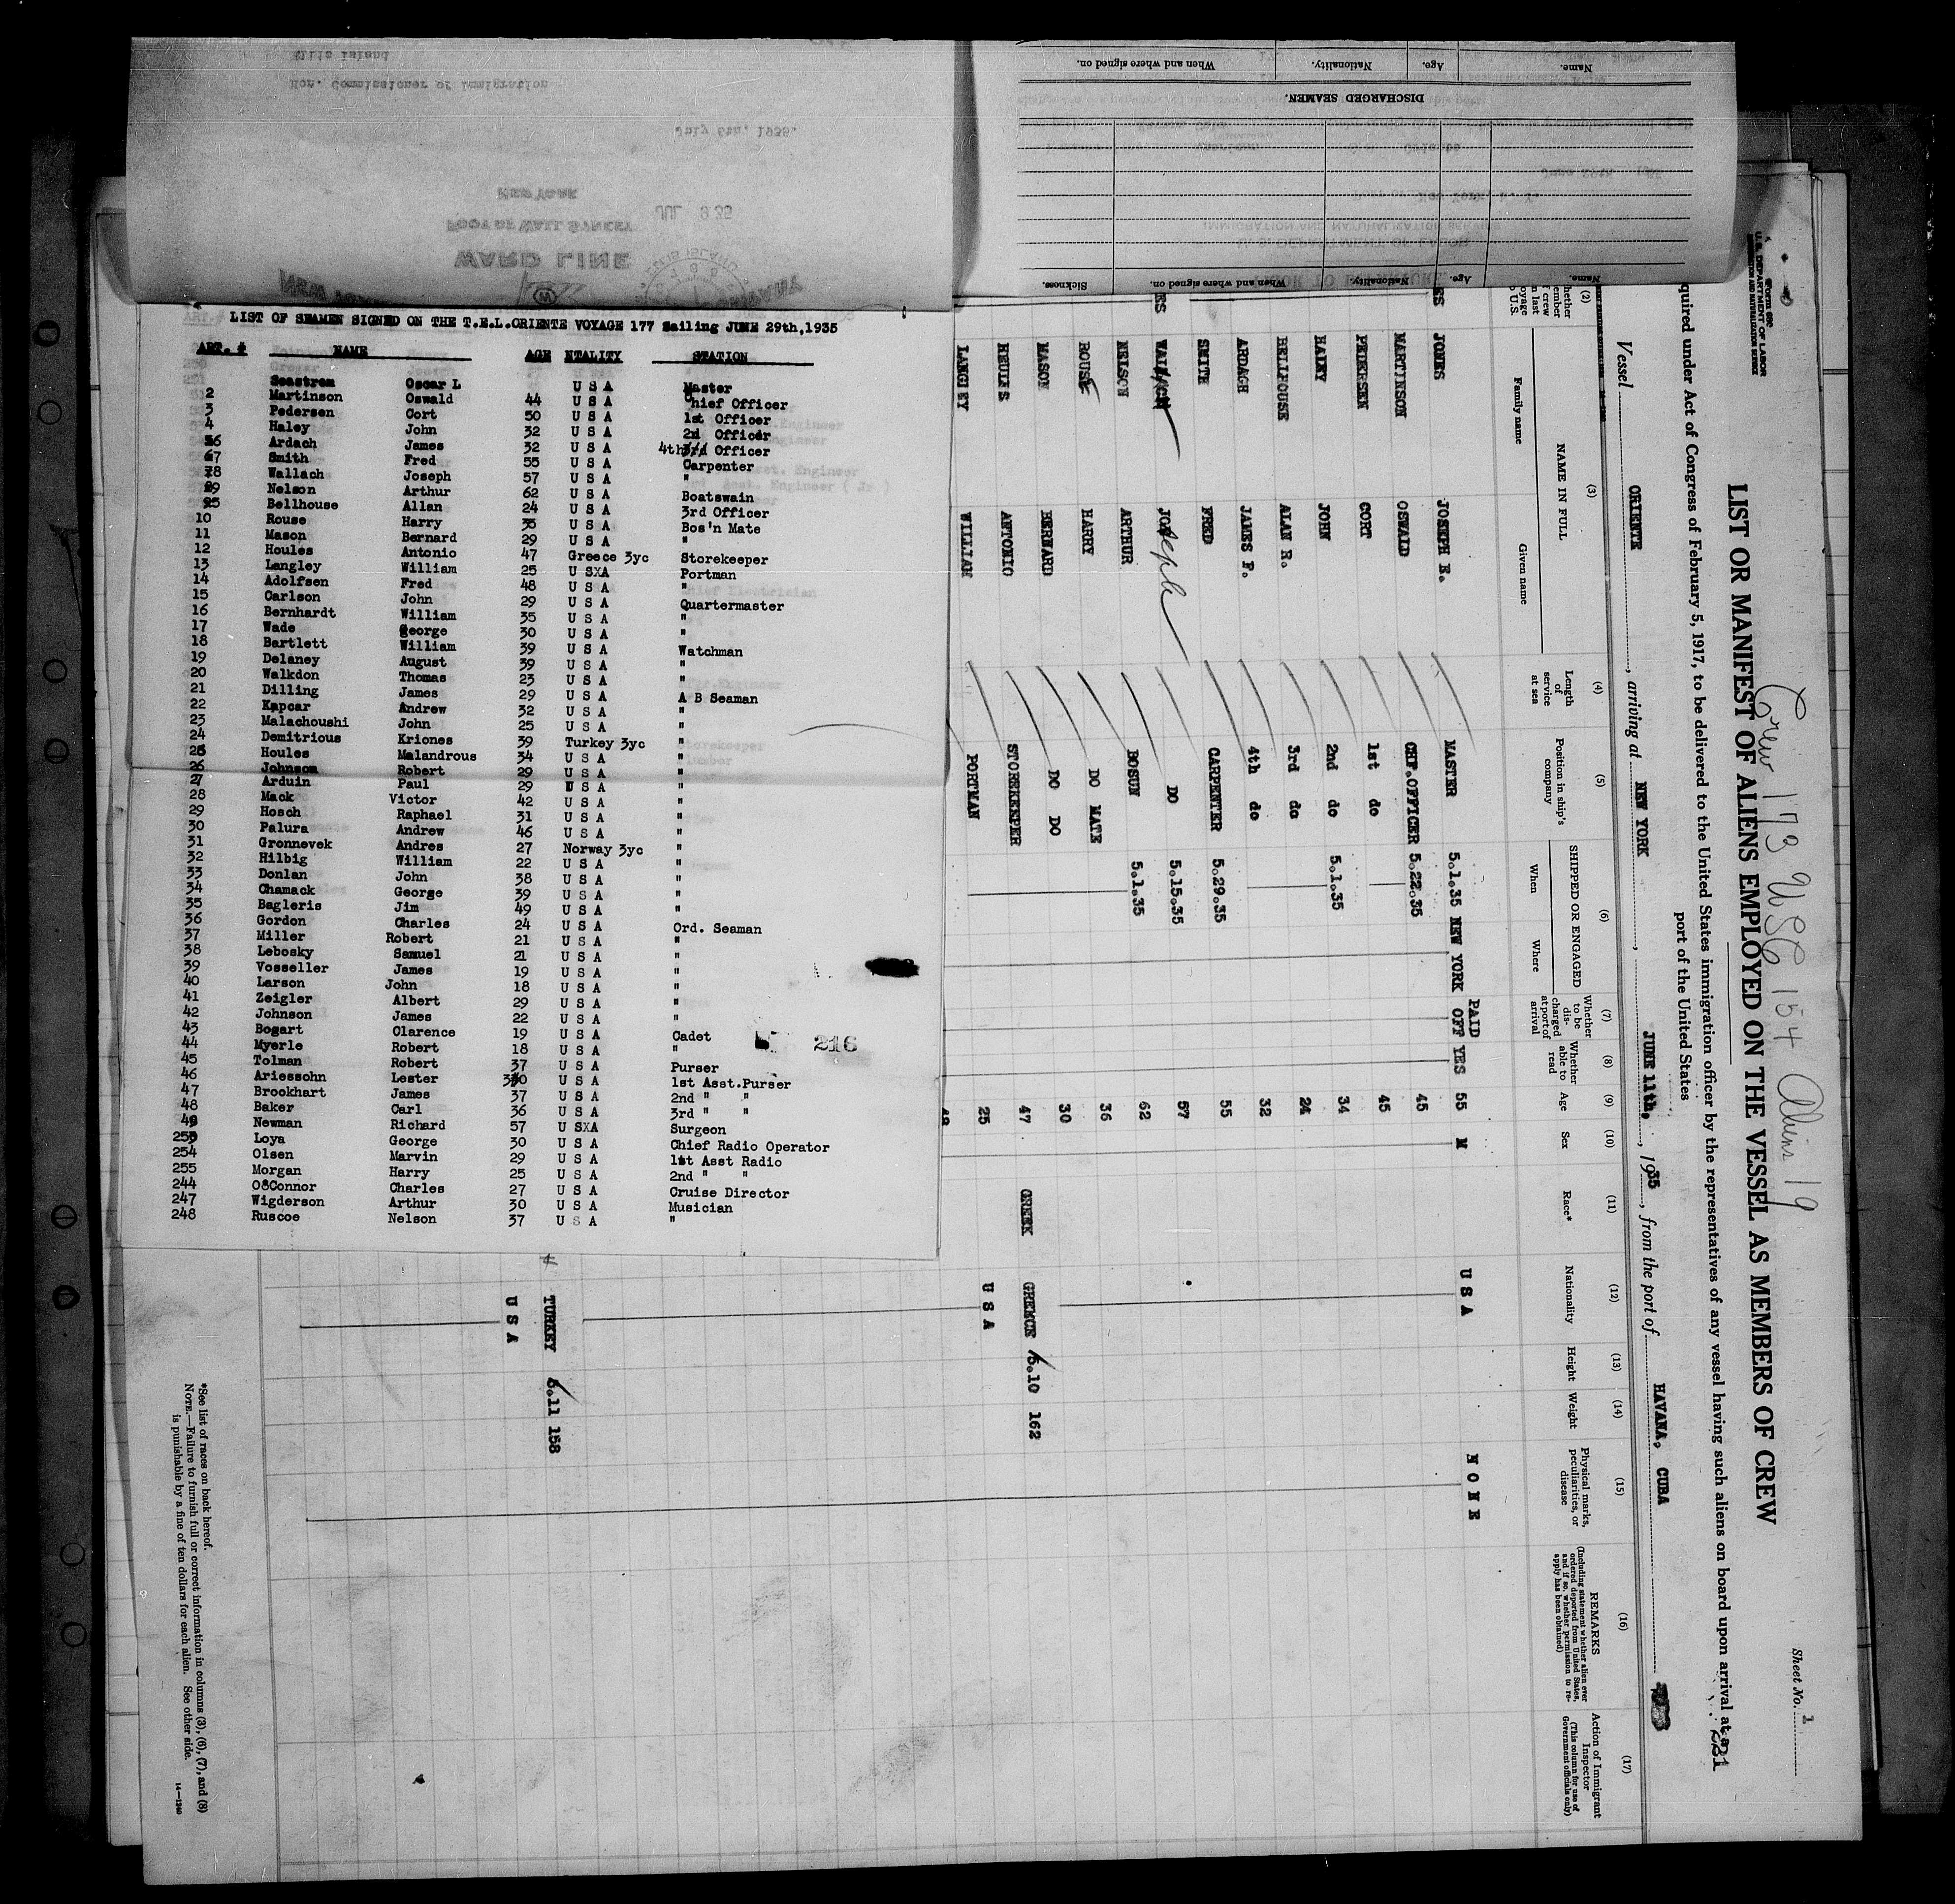 Ellis Island
Hon. Commissioner of Immigration
July 6th, 1935.
NEW YORK
FOOT OF WALL STREET
JUL 9 35
WARD LINE
Name. Age. Nationality. When and where signed on.
DISCHARGED SEAMEN.
Name. Age. Nationality. When and where signed on. Sickness.
LIST OF SEAMEN SIGNED ON THE T.E.L.ORIENTE VOYAGE 177 Sailing JUNE 29th,1935
ART. # NAME AGE NTALITY STATION
Seastrom Oscar L U S A Master
2 Martinson Oswald 44 U S A Chief Officer
3 Pedersen Cort 50 U S A 1st Officer
4 Haley John 32 U S A 2nd Officer
6 Ardach James 32 U S A 4th Officer
7 Smith Fred 55 U S A Carpenter
8 Wallach Joseph 57 U S A "
9 Nelson Arthur 62 U S A Boatswain
5 Bellhouse Allan 24 U S A 3rd Officer
10 Rouse Harry 35 U S A Bos'n Mate
11 Mason Bernard 29 U S A "
12 Houles Antonio 47 Greece 3yc Storekeeper
13 Langley William 25 U SXA Portman
14 Adolfsen Fred 48 U S A "
15 Carlson John 29 U S A Quartermaster
16 Bernhardt William 35 U S A "
17 Wade George 30 U S A "
18 Bartlett William 39 U S A Watchman
19 Delaney August 39 U S A "
20 Walkdon Thomas 23 U S A "
21 Dilling James 29 U S A A B Seaman
22 Kapcar Andrew 32 U S A "
23 Malachoushi John 25 U S A "
24 Demitrious Kriones 39 Turkey 3yc "
25 Houles Malandrous 34 U S A "
26 Johnson Robert 29 U S A "
27 Arduin Paul 29 U S A "
28 Mack Victor 42 U S A "
29 Hosch Raphael 31 U S A "
30 Palura Andrew 46 U S A "
31 Gronnevek Andres 27 Norway 3yc "
32 Hilbig William 22 U S A "
33 Donlan John 38 U S A "
34 Chamack George 39 U S A "
35 Bagleris Jim 49 U S A "
36 Gordon Charles 24 U S A Ord. Seaman
37 Miller Robert 21 U S A "
38 Lebosky Samuel 21 U S A "
39 Vosseller James 19 U S A "
40 Larson John 18 U S A "
41 Zeigler Albert 29 U S A "
42 Johnson James 22 U S A "
43 Bogart Clarence 19 U S A Cadet
44 Myerle Robert 18 U S A "
45 Tolman Robert 37 U S A Purser
46 Ariessohn Lester 30 U S A 1st Asst.Purser
47 Brookhart James 37 U S A 2nd " "
48 Baker Carl 36 U S A 3rd " "
49 Newman Richard 57 U SXA Surgeon
253 Loya George 30 U S A Chief Radio Operator
254 Olsen Marvin 29 U S A 1st Asst Radio
255 Morgan Harry 25 U S A 2nd " "
244 O8Connor Charles 27 U S A Cruise Director
247 Wigderson Arthur 30 U S A Musician
248 Ruscoe Nelson 37 U S A "
216
U. S. DEPARTMENT OF LABOR
Sheet No. 1
Crew 173 USC 154 Aliens 19
LIST OR MANIFEST OF ALIENS EMPLOYED ON THE VESSEL AS MEMBERS OF CREW
quired under Act of Congress of February 5, 1917, to be delivered to the United States immigration officer by the representatives of any vessel having such aliens on board upon arrival at a
port of the United States
221
Vessel ORIENTE, arriving at NEW YORK, JUNE 11th., 1935, from the port of HAVANA, CUBA
(2) (3) (4) (5) (6) (7) (8) (9) (10) (11) (12) (13) (14) (15) (16) (17)
NAME IN FULL
Family name Given name
Length of service at sea
Position in ship's company
SHIPPED OR ENGAGED
When Where
Whether to be discharged at port of arrival
Whether able to read
Age
Sex
Race*
Nationality
Height
Weight
Physical marks, peculiarities, or disease
REMARKS
(Including statement whether alien ever ordered deported from United States, and if so, whether permission to reapply has been obtained)
Action of Immigrant Inspector
(This column for use of Government officials only)
JONES JOSEPH E. MASTER 5.1.35 NEW YORK PAID OFF YES 55 M U S A N O N E
MARTINSON OSWALD CHF.OFFICER 5.22.35 45
PEDERSEN CORT 1st do 45
HALEY JOHN 2nd do 5.1.35 34
BELLHOUSE ALAN R. 3rd do 24
ARDAGH JAMES F. 4th do 32
SMITH FRED CARPENTER 5.29.35 55
WALLACH Joseph DO 5.15.35 57
NELSON ARTHUR BOSUN 5.1.35 62
ROUSE HARRY DO MATE 36
MASON BERNARD DO DO 30
HEULIS ANTONIO STOREKEEPER 47 GREEK GREECE 5.10 162
LANGLEY WILLIAM PORTMAN 25 U S A
TURKEY 5.11 158
U S A
*See list of races on back hereof.
NOTE.—Failure to furnish full or correct information in columns (3), (6), (7), and (8)
is punishable by a fine of ten dollars for each alien. See other side.
14—1240